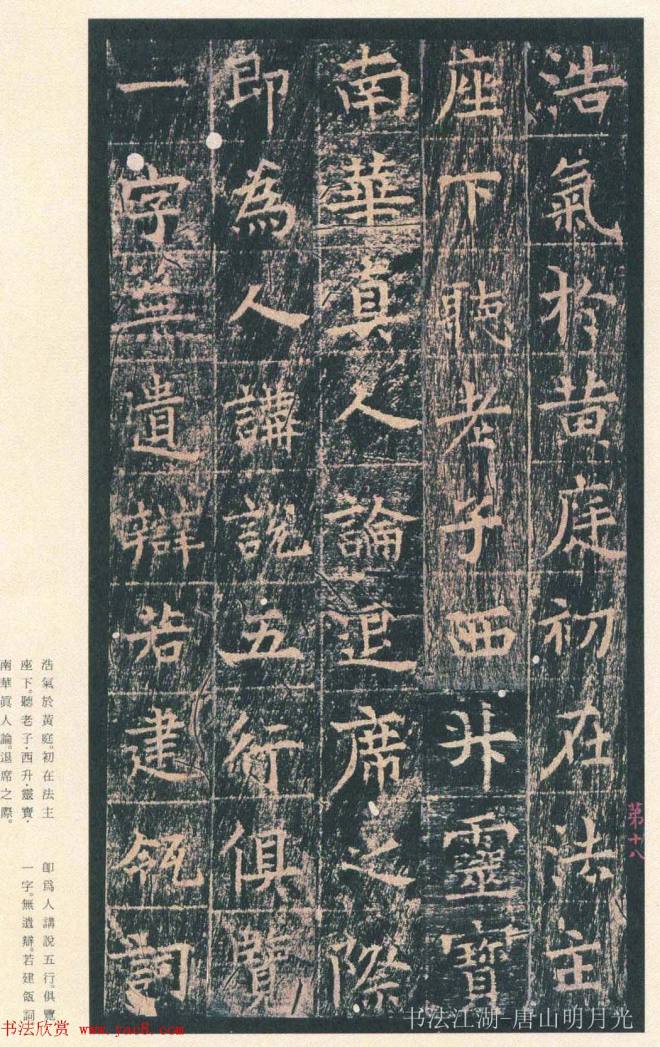 浩氣於黄庭初在法主
座下聽老子西升靈寶
南華真人論退席之際
即為人講說五行俱覽
一字無遺辯若建瓴詞
第十八
浩氣於黃庭。初在法主
座下。聽老子·西升·靈寶·
南華眞人論。退席之際。
卽爲人講說五行。俱覽
一字。無遺辯。若建瓴詞
书法欣赏 www.yac8.com
书法江湖-唐山明月光